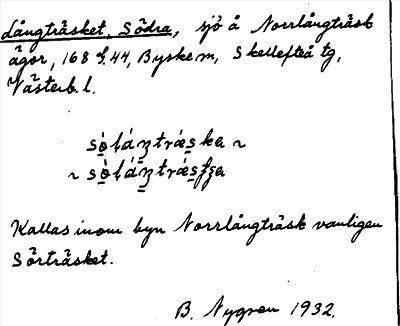 Långträsket, Södra, sjö å Norrlångträsk
ägor, 168 f. 44, Byske sn, Skellefteå tg,
Västerb. l.
Kallas inom byn Norrlångträsk vanligen
Sörträsket.
B. Nygren 1932.